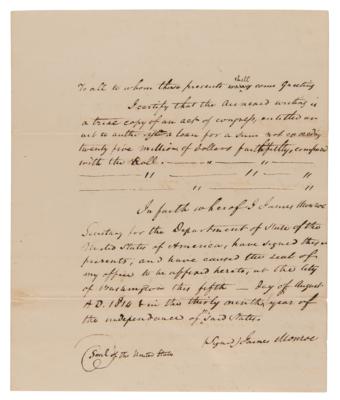 To all to whom these presents shall come Greeting
I certify that the Annexed writing is
a true copy of an act of congress, entitled an
act to a loan for a sum not exceeding
twenty five million of dollars faithfully, compared
with the Roll. — " — "
— " — " "
— " "
In faith whereof I James Monroe
Secretary for the Department of State of the
United States of America, have signed these
presents, and have caused the seal of
my office to be affixed hereto, at the City
of Washington this fifth — day of August
A.D. 1814 & in the thirty ninth year of
the independance of said States.
(Signed) James Monroe
(Seal) of the United States